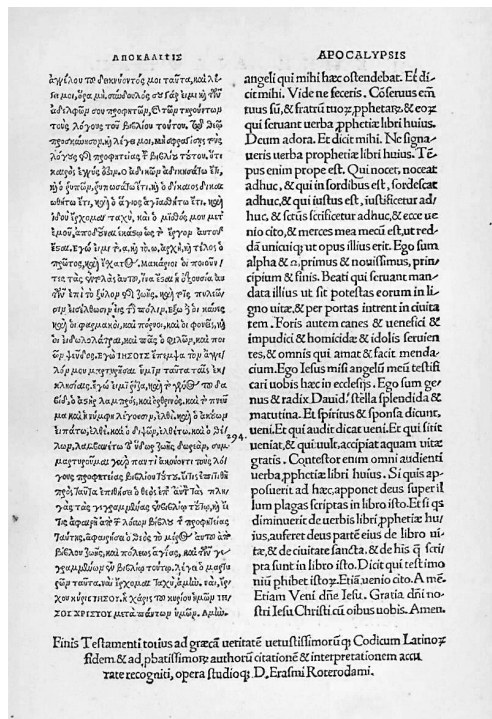 ΑΠΟΚΑΛΙΤΙΣ
ἀγγέλου τοῦ δεικνύοντός μοι ταῦτα, καὶ λέ/
γει μοι, ὅρα μὴ, σύνδουλός σου γάρ εἰμι καὶ τῶν
ἀδελφῶν σου προφητῶν, καὶ τῶν τηρούντων
τοὺς λόγους τοῦ βιβλίου τούτου. τῷ θεῷ
προσκύνησον, καὶ λέγει μοι, μὴ σφραγίσῃς τοὺς
λόγους τῆς προφητείας τοῦ βιβλίου τούτου, ὅτι
ὁ καιρὸς ἐγγύς ἐστιν. ὁ ἀδικῶν ἀδικησάτω ἔτι,
καὶ ὁ ῥυπῶν, ῥυπωσάτω ἔτι, καὶ ὁ δίκαιος δικαι
ωθήτω ἔτι, καὶ ὁ ἅγιος ἁγιασθήτω ἔτι, καὶ
ἰδοὺ ἔρχομαι ταχύ, καὶ ὁ μισθός μου μετ
ἐμοῦ, ἀποδοῦναι ἑκάστῳ ὡς τὸ ἔργον αὐτοῦ
ἔσται, ἐγώ εἰμι τὸ α, καὶ τὸ ω, ἀρχὴ, καὶ τέλος ὁ
πρῶτος, καὶ ἔσχατος. Μακάριοι οἱ ποιοῦν/
τες τὰς ἐντολὰς αὐτοῦ, ἵνα ἔσται ἡ ἐξουσία αὐ
τῶν ἐπὶ τὸ ξύλον τῆς ζωῆς. καὶ τοῖς πυλῶσιν
εἰσέλθωσιν εἰς τὴν πόλιν. ἔξω δὲ οἱ κύνες
καὶ οἱ φαρμακοὶ, καὶ πόρνοι, καὶ οἱ φονεῖς, καὶ
οἱ εἰδωλολάτραι, καὶ πᾶς ὁ φιλῶν, καὶ ποι
ῶν ψεῦδος. ἐγὼ ΙΗΣΟΥΣ ἔπεμψα τὸν ἄγγε/
λόν μου μαρτυρῆσαι ὑμῖν ταῦτα ταῖς ἐκ
κλησίαις. ἐγώ εἰμι ἡ ῥίζα, καὶ τὸ γένος τοῦ δα
βὶδ, ὁ ἀστὴρ λαμπρὸς, καὶ ὀρθρινὸς, καὶ τὸ πνεῦ
μα καὶ ἡ νύμφη λέγουσιν, ἐλθὲ, καὶ ὁ ἀκούων
εἰπάτω, ἐλθὲ, καὶ ὁ διψῶν, ἐλθέτω, καὶ ὁ θέ/
λων, λαμβανέτω τὸ ὕδωρ ζωῆς δωρεάν. συμ
μαρτυροῦμαι γὰρ παντὶ ἀκούοντι τοὺς λό/
γους προφητείας βιβλίου τούτου, εἴ τις ἐπιτιθῇ
πρὸς ταῦτα ἐπιθήσει ὁ θεὸς ἐπ αὐτὸν τὰς πλη/
γὰς τὰς γεγραμμένας ἐν βιβλίῳ τούτῳ, καὶ εἴ
τις ἀφαιρῇ ἀπὸ τῶν λόγων βίβλου τῆς προφητείας
ταύτης, ἀφαιρήσει ὁ θεὸς τὸ μέρος αὐτοῦ ἀπὸ
βίβλου ζωῆς, καὶ πόλεως ἁγίας, καὶ τῶν γε/
γραμμένων ἐν βιβλίῳ τούτῳ. λέγει ὁ μαρτυ
ρῶν ταῦτα. ναὶ ἔρχομαι ταχύ, ἀμὴν. ναὶ, ἔρ/
χου κύριε ΙΗΣΟΥ. ἡ χάρις τοῦ κυρίου ἡμῶν ΙΗ/
ΣΟΥ ΧΡΙΣΤΟΥ μετὰ πάντων ὑμῶν. Ἀμὴν.
294.
APOCALYPSIS
angeli qui mihi hæc ostendebat. Et di/
cit mihi. Vide ne feceris. Cōseruus em̄
tuus sū, & fratrū tuoꝝ, ꝓphetarū, & eoꝝ
qui seruant uerba ꝓphetiæ libri huius.
Deum adora. Et dicit mihi. Ne signa/
ueris uerba prophetiæ libri huius. Tē/
pus enim prope est. Qui nocet, noceat
adhuc, & qui in sordibus est, sordescat
adhuc, & qui iustus est, iustificetur ad/
huc, & sctūs sctificetur adhuc, & ecce ue
nio cito, & merces mea mecū est, ut red/
dā unicuiqꝫ ut opus illius erit. Ego sum
alpha & ω, primus & nouissimus, prin/
cipium & finis. Beati qui seruant man/
data illius ut sit potestas eorum in li/
gno uitæ, & per portas intrent in ciuita
tem. Foris autem canes & uenefici &
impudici & homicidæ & idolis seruien
tes, & omnis qui amat & facit menda/
cium. Ego Iesus misi angelū meū testifi
cari uobis hæc in ecclesijs. Ego sum ge/
nus & radix Dauid, stella splendida &
matutina. Et spiritus & sponsa dicunt,
ueni. Et qui audit dicat ueni. Et qui sitit
ueniat, & qui uult, accipiat aquam uitæ
gratis. Contestor enim omni audienti
uerba, ꝓphetiæ libri huius. Si quis ap/
posuerit ad hæc, apponet deus super il
lum plagas scriptas in libro isto. Et si qs
diminuerit de uerbis libri, ꝓphetiæ hu/
ius, auferet deus partē eius de libro ui/
tæ, & de ciuitate sancta, & de his q̄ scri/
pta sunt in libro isto. Dicit qui testimo
niū ꝑhibet istoꝝ. Etiā, uenio cito. A mē.
Etiam Veni dn̄e Iesu. Gratia dn̄i no/
stri Iesu Christi cū oībus uobis. Amen.
Finis Testamenti totius ad græcā ueritatē uetustissimorūqꝫ Codicum Latinoꝝ
fidem & ad ꝓbatissimoꝝ authorū citationē & interpretationem accu
rate recogniti, opera studioqꝫ D. Erasmi Roterodami.